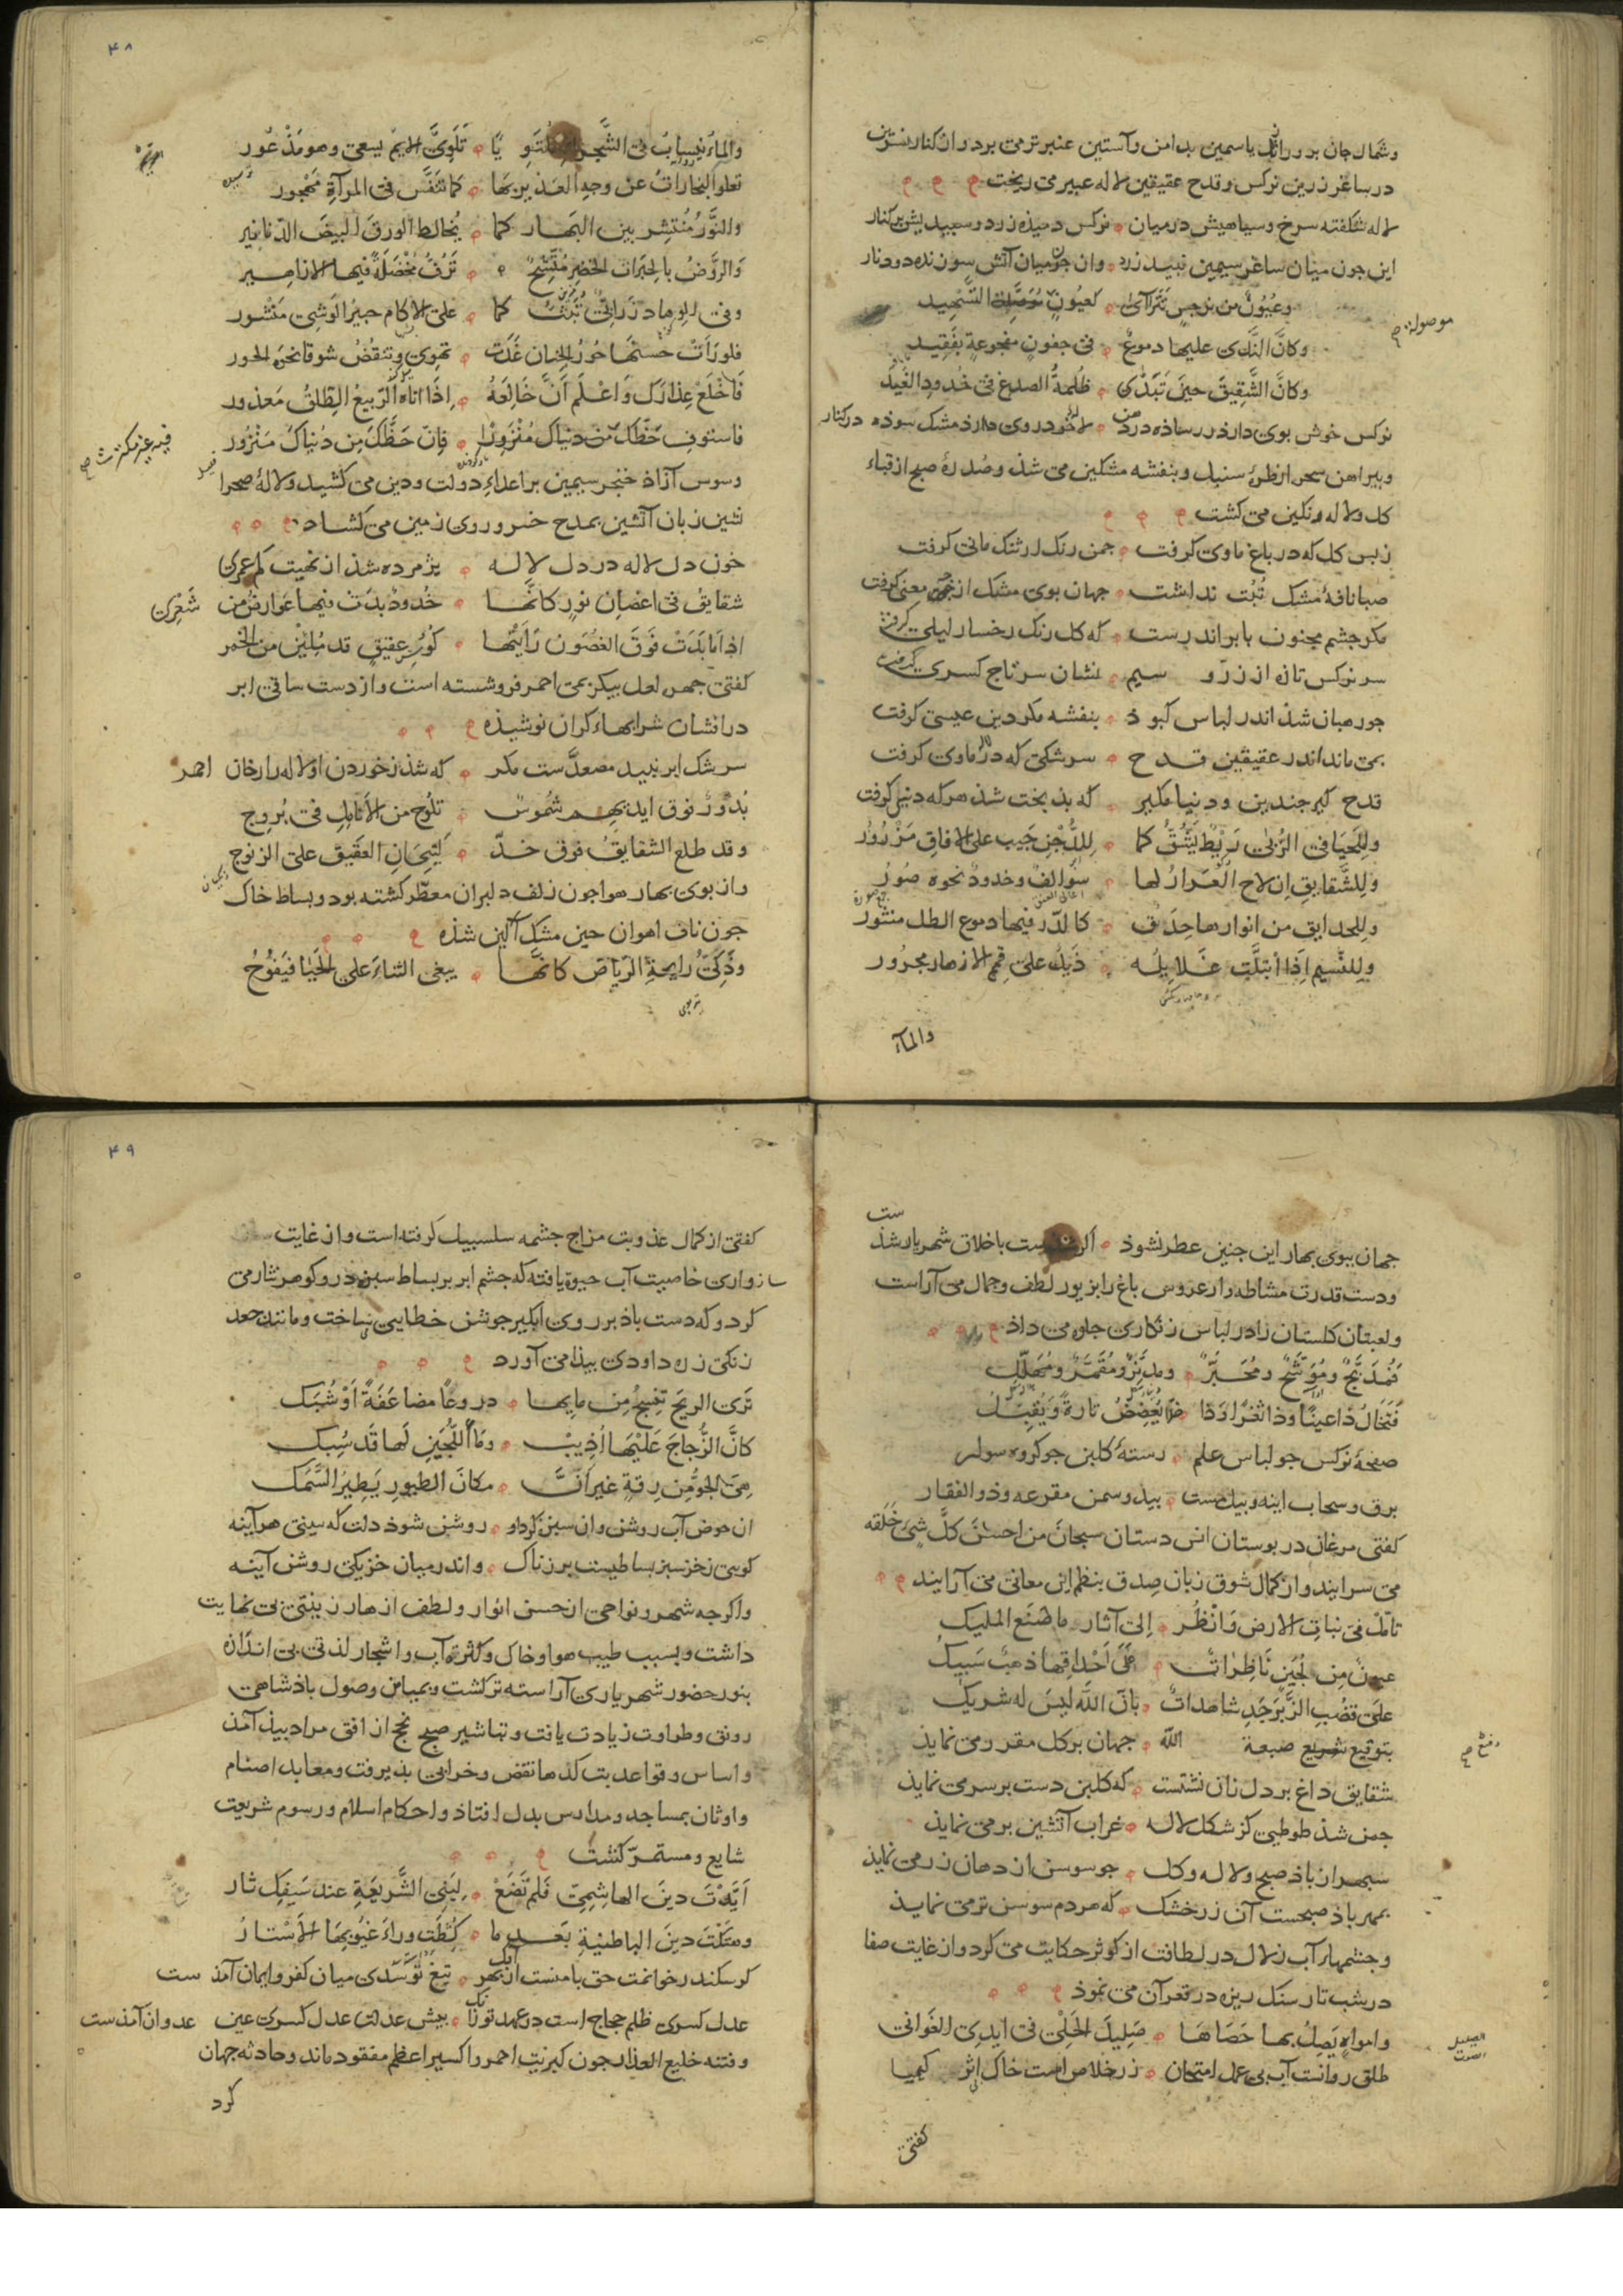 وشمال جان پرور از تک یاسمین بدامن وآستین عنبر تر می برد واز کنار نسترن
در ساغر زرین نرکس و قدح عقیقین لاله عبیر می ریخت
لاله شکفته سرخ وسیاهیش درمیان نرکس دمیذه زرد وسپیدیش بر کنار
این جون میان ساغر سیمین نبید زرد وان جون میان آتش سوزنده دود نار
وعیون من نرجس تترآای کعیون موصلة التسهید
موصولة صح
وکان الندی علیها دموع فی جفون مفجوعة بفقید
وکان الشقیق حین تبدی ظلمة الصدغ فی خدود الغید
نرکس خوش بوی دارد زر ساذه در دهن لاله خود روی دارد مشک سوذه در کنار
وپیراهن سحر از طرهٔ سنبل وبنفشه مشکین می شذ وصدرهٔ صبح از قباء
کل ولاله رنکین می کشت
ز بس کل که در باغ ماوی کرفت جمن رنک ارتنک مانی کرفت
صبا نافهٔ مشک تبت نداشت جهان بوی مشک از چه معنی کرفت
مکر جشم مجنون بابر اندرست که کل رنک رخسار لیلی کرفت
سر نرکس تازه از زر و سیم نشان سر تاج کسری کرفت
جو رهبان شذ اندر لباس کبوذ بنفشه مکر دین عیسی کرفت
بمی ماند اندر عقیقین قدح سرشکی که در لاله ماوی کرفت
قدح کیر جندین ودنیا مکیر که بذ بخت شذ هر که دنیی کرفت
وللحیا فی الربی ریط یشق کما للدجن جیب علی الافاق مزرور
وللشقایق ان لاح العرار لها سوالف وخدود نحوه صور
وللحدایق من انوارها حدق کالدر فیها دموع الطل منثور
وللنسیم اذا ابتلت غلایله ذیل علی قمم الازهار مجرور
والمآء
۴۸
والماء ینساب فی الشجراء ملتویا تلوی الایم یسعی وهو مذعور
تعلو البخارات عن وجه الغدیر بها کما تنفس فی المرآة مهجور
والنور منتشر بین البهار کما یخالط الورق البیض الدنانیر
والروض بالحبرات الخضر متشح تزف مخضلة فیها الازاهیر
وفی الوهاد زرابی تبث کما علی الاکام حبیر الوشی منشور
فلو رات حسنها حور الجنان غدت تهوی وتنقض شوقا نحوه الحور
فاخلع عذارک واعلم ان خالعه اذا اتاه الربیع الطلق معذور
فاستوف حظک من دنیاک مغزورا فان حظک من دنیاک منزور
وسوسن آزاذ خنجر سیمین بر اعداء دولت ودین می کشید ولالهٔ صحرا
نشین زبان آتشین بمدح خسرو روی زمین می کشاد
خون دل لاله در دل لاله پژمرده شذ از نهیب کم عمری
شقایق فی اغصان نور کانها خدود بدت فیها عوارض من شعر
اذا ما بدت فوق الغصون رایتها کؤس عقیق قد ملین من الخمر
کفتی جهره لعل پیکر بمی احمر فرو شسته است واز دست ساقی ابر
درافشان شرابهاء کران نوشیذه
سرشک ابر نبید مصعدست مکر که شذ ز خوردن او لاله را رخان احمر
بدور فوق ایدیهم شموس تلوح من الانامل فی بروج
وقد طلع الشقایق فوق خد کتیجان العقیق علی الزنوج
واز بوی بهار هوا جون زلف دلبران معطر کشته بود وبساط خاک
جون ناف اهوان جین مشک آکین شذه
وذکی رایحة الریاض کانها یبغی الثناء علی الحیا فیفوح
جهان ببوی بهار این جنین عطر نشوذ باخلاق شهریار شذست
ودست قدرت مشاطه وار عروس باغ را بزیور لطف وجمال می آراست
ولعبتان کلستان را در لباس زنکاری جلوه می داذ
فمدبج وموشح ومحبر ومدنر ومقمر ومهلل
فتخال ذا عینا وذا ثغرا وذا خدا یعضض تارة ویقبل
صفحهٔ نرکس جو لباس علم رستهٔ کلبن جو کروه سوار
برق وسحاب اینه وپیل مست بید وسمن مقرعه وذو الفقار
کفتی مرغان در بوستان این دستان سبحان من احسن کل شیء خلقه
می سرایند واز کمال شوق زبان صدق بنظم این معانی می آرایند
تامل فی نبات الارض وانظر الی آثار ما صنع الملیک
عیون من لجین ناظرات علی احداقها ذهب سبیک
علی قضب الزبرجد شاهدات بان الله لیس له شریک
بتوقیع صبغة الله جهان بر کل مقرر می نمایذ
شقایق داغ بر دل زان نشستست که کلبن دست بر سر می نمایذ
جمن شذ طوطیی کز شکل لاله غراب آتشین بر می نمایذ
سپهر از باذ صبح ولاله وکل جو سوسن از دهان زر می نمایذ
بمهر باذ صبحست آن زر خشک که هر دم سوسن تر می نمایذ
وجشمهاء آب زلال در لطافت از کوثر حکایت می کرد واز غایت صفا
در شب تار سنک ریزه در قعر آن می نموذ
وامواه یصل بها حصاها صلیل الحلی فی ایدی الغوانی
الصلیل الصوت
طلق روانست آب بی عمل امتحان زر خلاص است خاک بی اثر کیمیا
کفتی
۴۹
کفتی از کمال عذوبت مزاج جشمه سلسبیل کرفته است واز غایت
سازواری خاصیت آب حیوة یافته که جشم ابر بر بساط سبزه در وکوهر نثار می
کرد وکه دست باذ بر روی آبکیر جوشن خطایی می ساخت ومانند جعد
زنکی زره داودی بیذا می آورد
تری الریح تنسج من مایها دروعا مضاعفة او شبک
کان الزجاج علیها اذیب وماء اللجین لها قد سبک
هی الجو من رقة غیر ان مکان الطیور یطیر السمک
ان حوض آب روشن وان سبزه کرد او روشن شود دلت که ببینی هر آینه
کویی ز خز سبز بساطیست برز ناک واندر میان خز یکی روشن آینه
واکرجه شهر ونواحی از حسن انوار ولطف ازهار زینتی بی نهایت
داشت وبسبب طیب هوا وخاک وکثرت آب واشجار لذتی بی اندازه
بنور حضور شهریاری آراسته تر کشت وبمیامن وصول باذشاهی
رونق وطراوت زیادت یافت وتباشیر صبح نجح از افق مراد بیذ آمذ
واساس وقواعد بت کدها نقض وخرابی پذیرفت ومعابد اصنام
واوثان بمساجد ومدارس بدل افتاذ واحکام اسلام ورسوم شریعت
شایع ومستمر کشت
ایدت دین الهاشمی فلم تضع لبنی الشریعة عند سیفک ثار
وهتکت دین الباطنیة بعد ما کثفت وراء غیوبها الاستار
کر سکندر خوانمت حق بامنست از بهر آنک تیغ تو سدی میان کفر وایمان آمذ ست
عدل کسری ظلم حجاج است در عهد تو زانک پیش عدلت عدل کسری عین عدوان آمذ ست
وفتنه خلیع العذار جون کبریت احمر واکسیر اعظم مفقود ماند وحادثه جهان
کرد